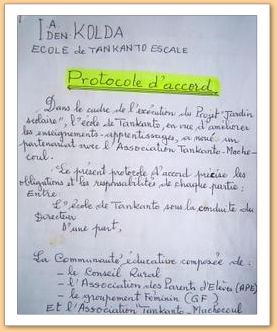 IA
IDEN: KOLDA
ECOLE de TANKANTO ESCALE
Protocole d'accord
Dans le cadre de l'exécution du Projet "Jardin
scolaire", l'école de Tankanto, en vue d'améliorer
les enseignements-apprentissages, a noué un
partenariat avec l'Association Tankanto-Mache-
coul.
Le présent protocole d'accord précise les
obligations et les responsabilités de chaque partie:
Entre
L'école de Tankanto sous la conduite du
Directeur
D'une part,
La Communauté éducative composée de:
- le Conseil Rural
- l'Association des Parents d'Elèves (APE)
- le groupement Féminin (GF)
Et l'Association Tankanto-Machecoul